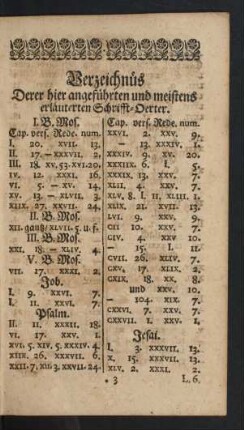 Verzeichnüs
Derer hier angeführten und meistens
erläuterten Schrifft-Oerter.
I. B. Mos.
Cap. vers. Rede. num.
I. 20. XVII. 13.
II. 17. — XXXVII. 2.
III. 18. XV. 53. XVI. 20.
IV. 12. XXXI. 16.
VI. 5. — XV. 14.
XV. 13. — XLVII. 3.
XIIX. 27. XXVII. 24.
II. B. Mos.
XII. gantz/ XLVII. 5. u. f.
III. B. Mos.
XXI. 18. — XLIV. 4.
V. B. Mos.
VII. 17. XXXI. 2.
Job.
I. 9. XXVI. 7.
I. 11. XXVI. 7.
Psalm.
II. 11. XXXII. 18.
VI. 17. XXV. 1.
XVI. XIV. 5. XXXIV. 4.
XIIX. 26. XXXVII. 6.
XXII. 7. XII. 3. XXVII. 24.
Cap. vers. Rede. num.
XXVI. 2. XXV. 9.
— 13. XXXIV. 1.
XXXIV. 9. XV. 20.
XXXIIX. 6. I. 5.
XXXIX. 13. XV. 7.
XLII. 4. XXV. 7.
XLV. 8. I. II. XIII. I.
XLIX. 21. XVII. 13.
LVI. 9. XXV. 9.
CII 10. XXV. 7.
CIV. 4. XXV 10.
— 15. I. 11.
CVII. 26. XLIV. 7.
CXV. 17. XLIX. 2.
CXIX. 18. XX. 8.
und XXV. 10.
— 104. XIX. 7.
CXXVI. I. XXV. 7.
CXXVII. I. XXV. 1.
Jesai.
I. 3. XXXVII. 13.
X. 15. XXXVII. 13.
XLV. 2. XXXI. 2.
* 3
L. 6.